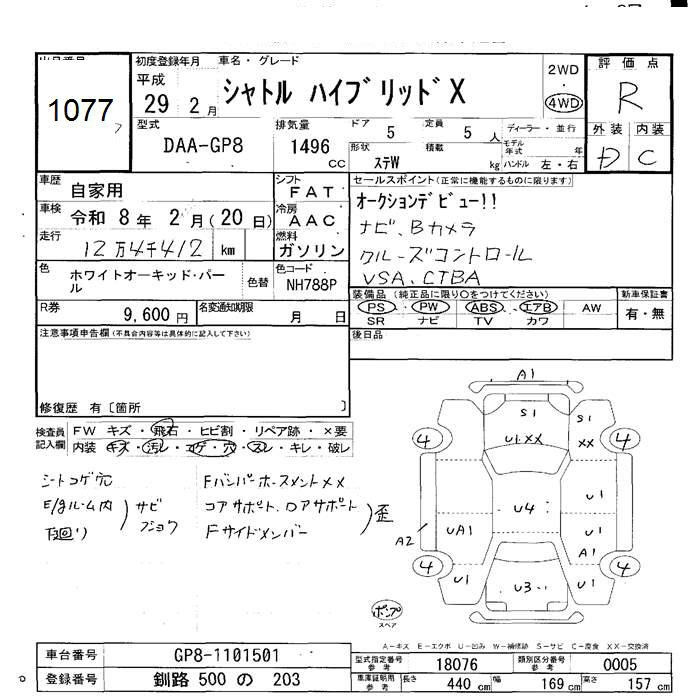 1077
初度登録年月
平成
29 2月
車名・グレード
シャトル ハイブリッド X
2WD
4WD
評価点
R
型式
DAA-GP8
排気量
1496
CC
ドア
5
定員
5 人
形状
ステW
積載
kg
ディーラー・並行
モデル年式 年
ハンドル 左・右
外装 内装
D C
車歴
自家用
シフト
FAT
車検
令和 8年 2月(20日)
冷房
AAC
走行
12万4千412 km
燃料
ガソリン
色
ホワイトオーキッド・パール
色替
色コード
NH788P
セールスポイント(正常に機能するものに限ります)
オークションデビュー!!
ナビ、Bカメラ
クルーズコントロール
VSA、CTBA
R券
9,600 円
名変通知期限
月 日
装備品(純正品に限り○をつけてください)
PS・PW・ABS・エアB
AW
SR ナビ TV カワ
新車保証書
有・無
注意事項申告欄(不具合内容等は具体的に記入して下さい)
後日品
修復歴 有〔箇所 〕
検査員記入欄
FW キズ・飛石・ヒビ割・リペア跡・×要
内装 キズ・汚レ・コゲ・穴・スレ・キレ・破レ
シートコゲ穴
E/gルーム内
下回り
サビ
フショク
Fバンパーホースメント××
コアサポート、ロアサポート
Fサイドメンバー
歪
A1
S1
S1
U1××
××
4
4
U4
U1
UA1
A2
U1
A1
4
4
U1
U3
U1
ポンプ
スペア
A-キズ E-エクボ U-凹み W-補修跡 S-サビ C-腐食 XX-交換済
車台番号
GP8-1101501
登録番号
釧路 500 の 203
型式指定番号
参考
18076
類別区分番号
参考
0005
車庫証明用
参考
長さ 440 cm
幅 169 cm
高さ 157 cm